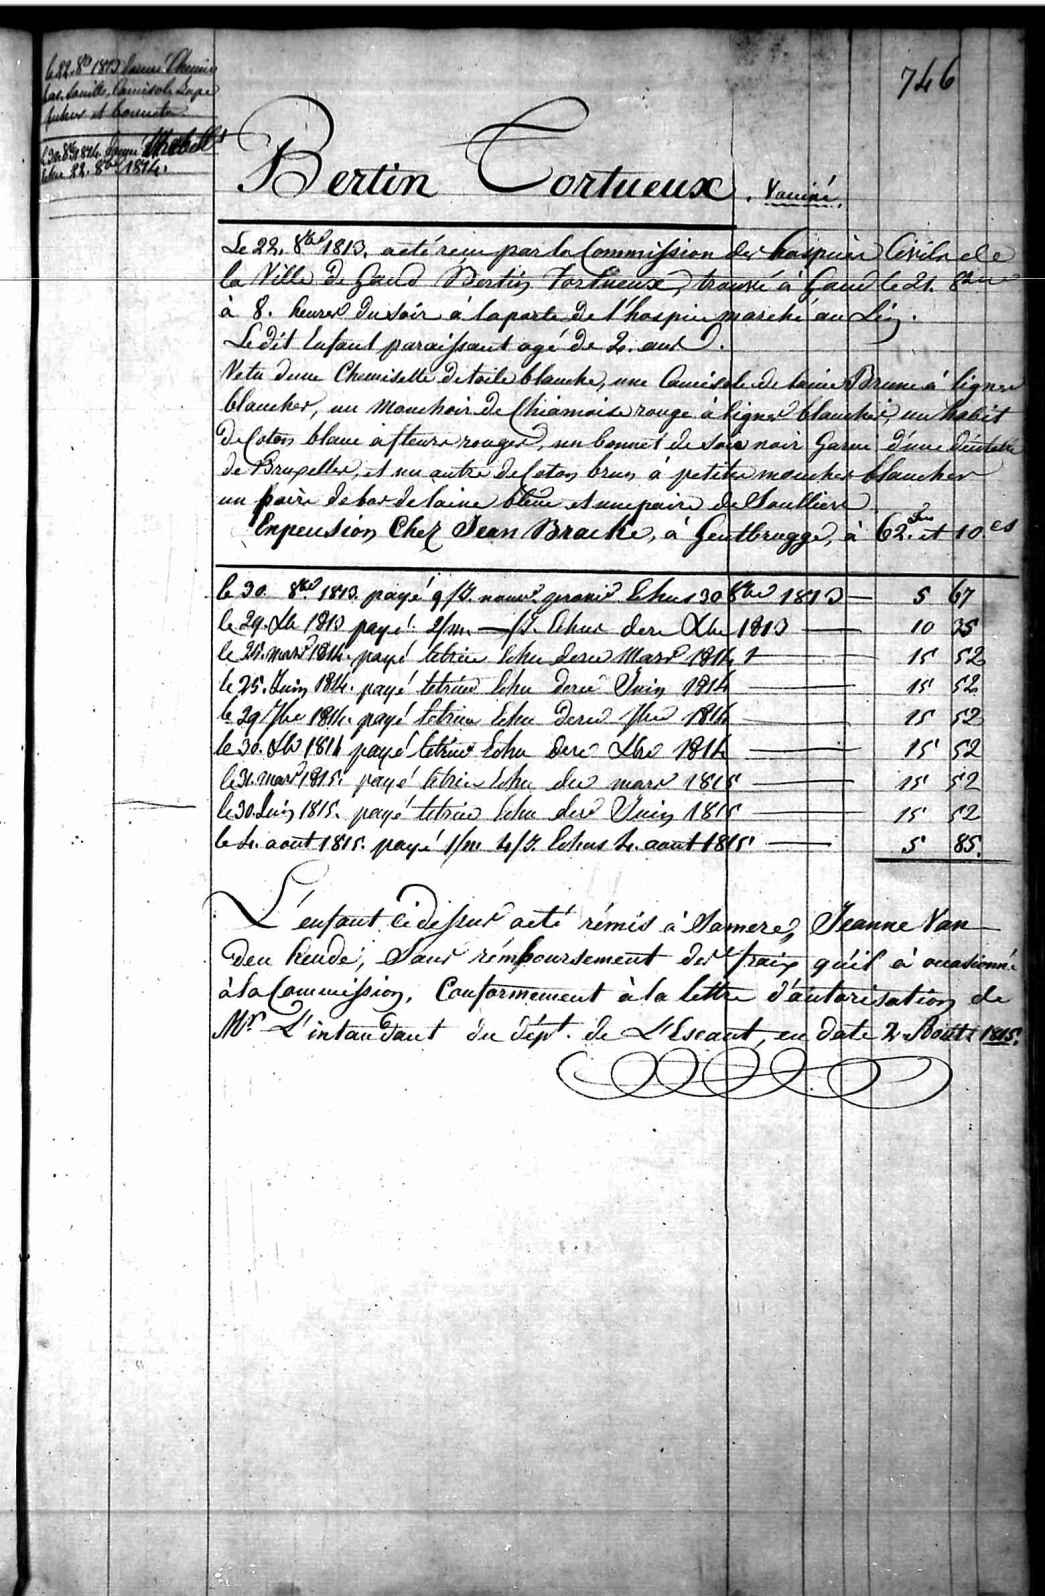 746
le 22. 8bre 1813 Chemise
bas, Camisole
et bonnets
le 30. 8bre 1814.
22. 8bre 1814.
Bertin Tortueux. Vacciné.
Le 22. 8bre 1813. a été reçu par la Commission des hospices Civils de
la Ville de Gand Bertin Tortueux, trouvé à Gand le 21. 8bre
à 8. heures du Soir à la porte de l'hospice marché au Lin.
Le dit Enfant paraissant agé de 2. ans.
Vetu d'une Chemisette de toile blanche, une Camisole de laine Brune à lignes
blanches, un Mouchoir de Chiamoise rouge à lignes blanches, un habit
de Coton blanc à fleurs rouges, un bonnet de soie noir Garni d'une dentelle
de Bruxelles, et un autre de Coton brun à petites mouches blanches
un paire de bas de laine bleue et une paire de Soulliers
En pension Chez Jean Bracke, à Gentbrugge, à 62. frs et 10. cs
le 30. 8bre 1813. payé 9/J. Echus 30 8bre 1813 — 5 67
le 29. Xbre 1813 payé 2/m. — /J. Echus dere Xbre 1813 — 10 35
le 25. mars 1814. payé letrim Echu dere Mars 1814 — 15 52
le 25. Juin 1814. payé letrim Echu dere Juin 1814 — 15 52
le 29 7bre 1814. payé letrim Echu dere 7bre 1814 — 15 52
le 30. Xbre 1814 payé letrim Echu dere Xbre 1814 — 15 52
le 31. mars 1815. payé letrim Echu der mars 1815 — 15 52
le 30. Juin 1815. payé letrim Echu der Juin 1815 — 15 52
le 4. aout 1815. payé 1/m. 4/J. Echus 4. aout 1815 — 5 85.
L'enfant cidessus a été rémis à Sa mere, Jeanne Van
den hende, Sans rémboursement des fraix qu'il à occasionné
à la Commission, Conformement à la lettre d'autorisation de
Mr. L'intandant du dépt. de L'Escaut, en date 2. Aout 1815.